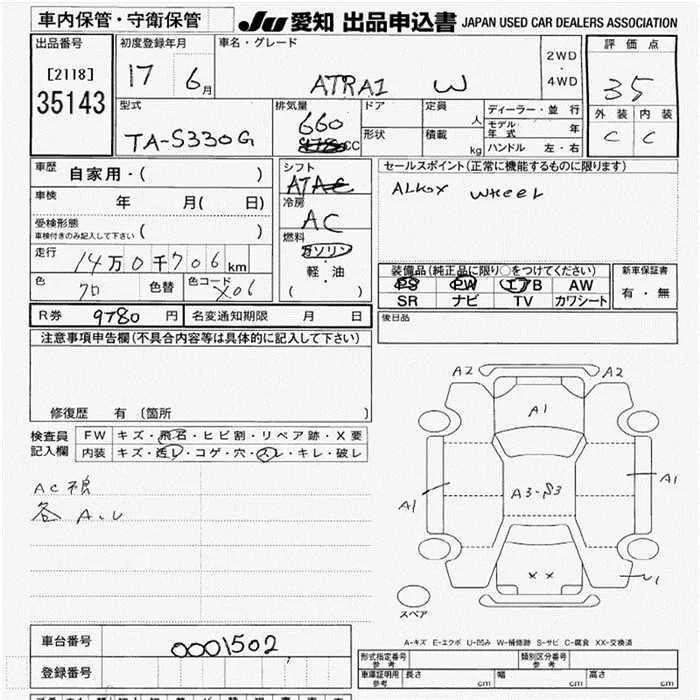 車内保管・守衛保管
JU 愛知 出品申込書 JAPAN USED CAR DEALERS ASSOCIATION
出品番号
[2118]
35143
初度登録年月
17 6月
車名・グレード
ATRAI W
2WD
・
4WD
評価点
35
外装 内装
C C
型式
TA-S330G
排気量
660
cc
ドア
形状
定員
人
積載
kg
ディーラー・並行
モデル年式 年
ハンドル 左・右
車歴 自家用・( )
車検 年 月( 日)
受検形態
車検付きのみ記入して下さい ( )
走行 14万0千706km
色 クロ 色替 色コード X06
シフト
AT
冷房
AC
燃料
ガソリン
・
軽・油
( )
セールスポイント(正常に機能するものに限ります)
ALLOY WHEEL
装備品(純正品に限り○をつけてください)
PS PW エアB AW
SR ナビ TV カワシート
新車保証書
有・無
R券 9780円 名変通知期限 月 日
後日品
注意事項申告欄(不具合内容等は具体的に記入して下さい)
修復歴 有 〔箇所 〕
検査員記入欄
FW キズ・飛石・ヒビ割・リペア跡・X要
内装 キズ・汚レ・コゲ・穴・スレ・キレ・破レ
各 A.U
A2 A2
A1
A1 A3-S3 A1
X X
スペア
A-キズ E-エクボ U-凹み W-補修跡 S-サビ C-腐食 XX-交換済
車台番号 0001502
登録番号
形式指定番号 参考 類別区分番号 参考
車庫証明用 参考 長さ cm 幅 cm 高さ cm